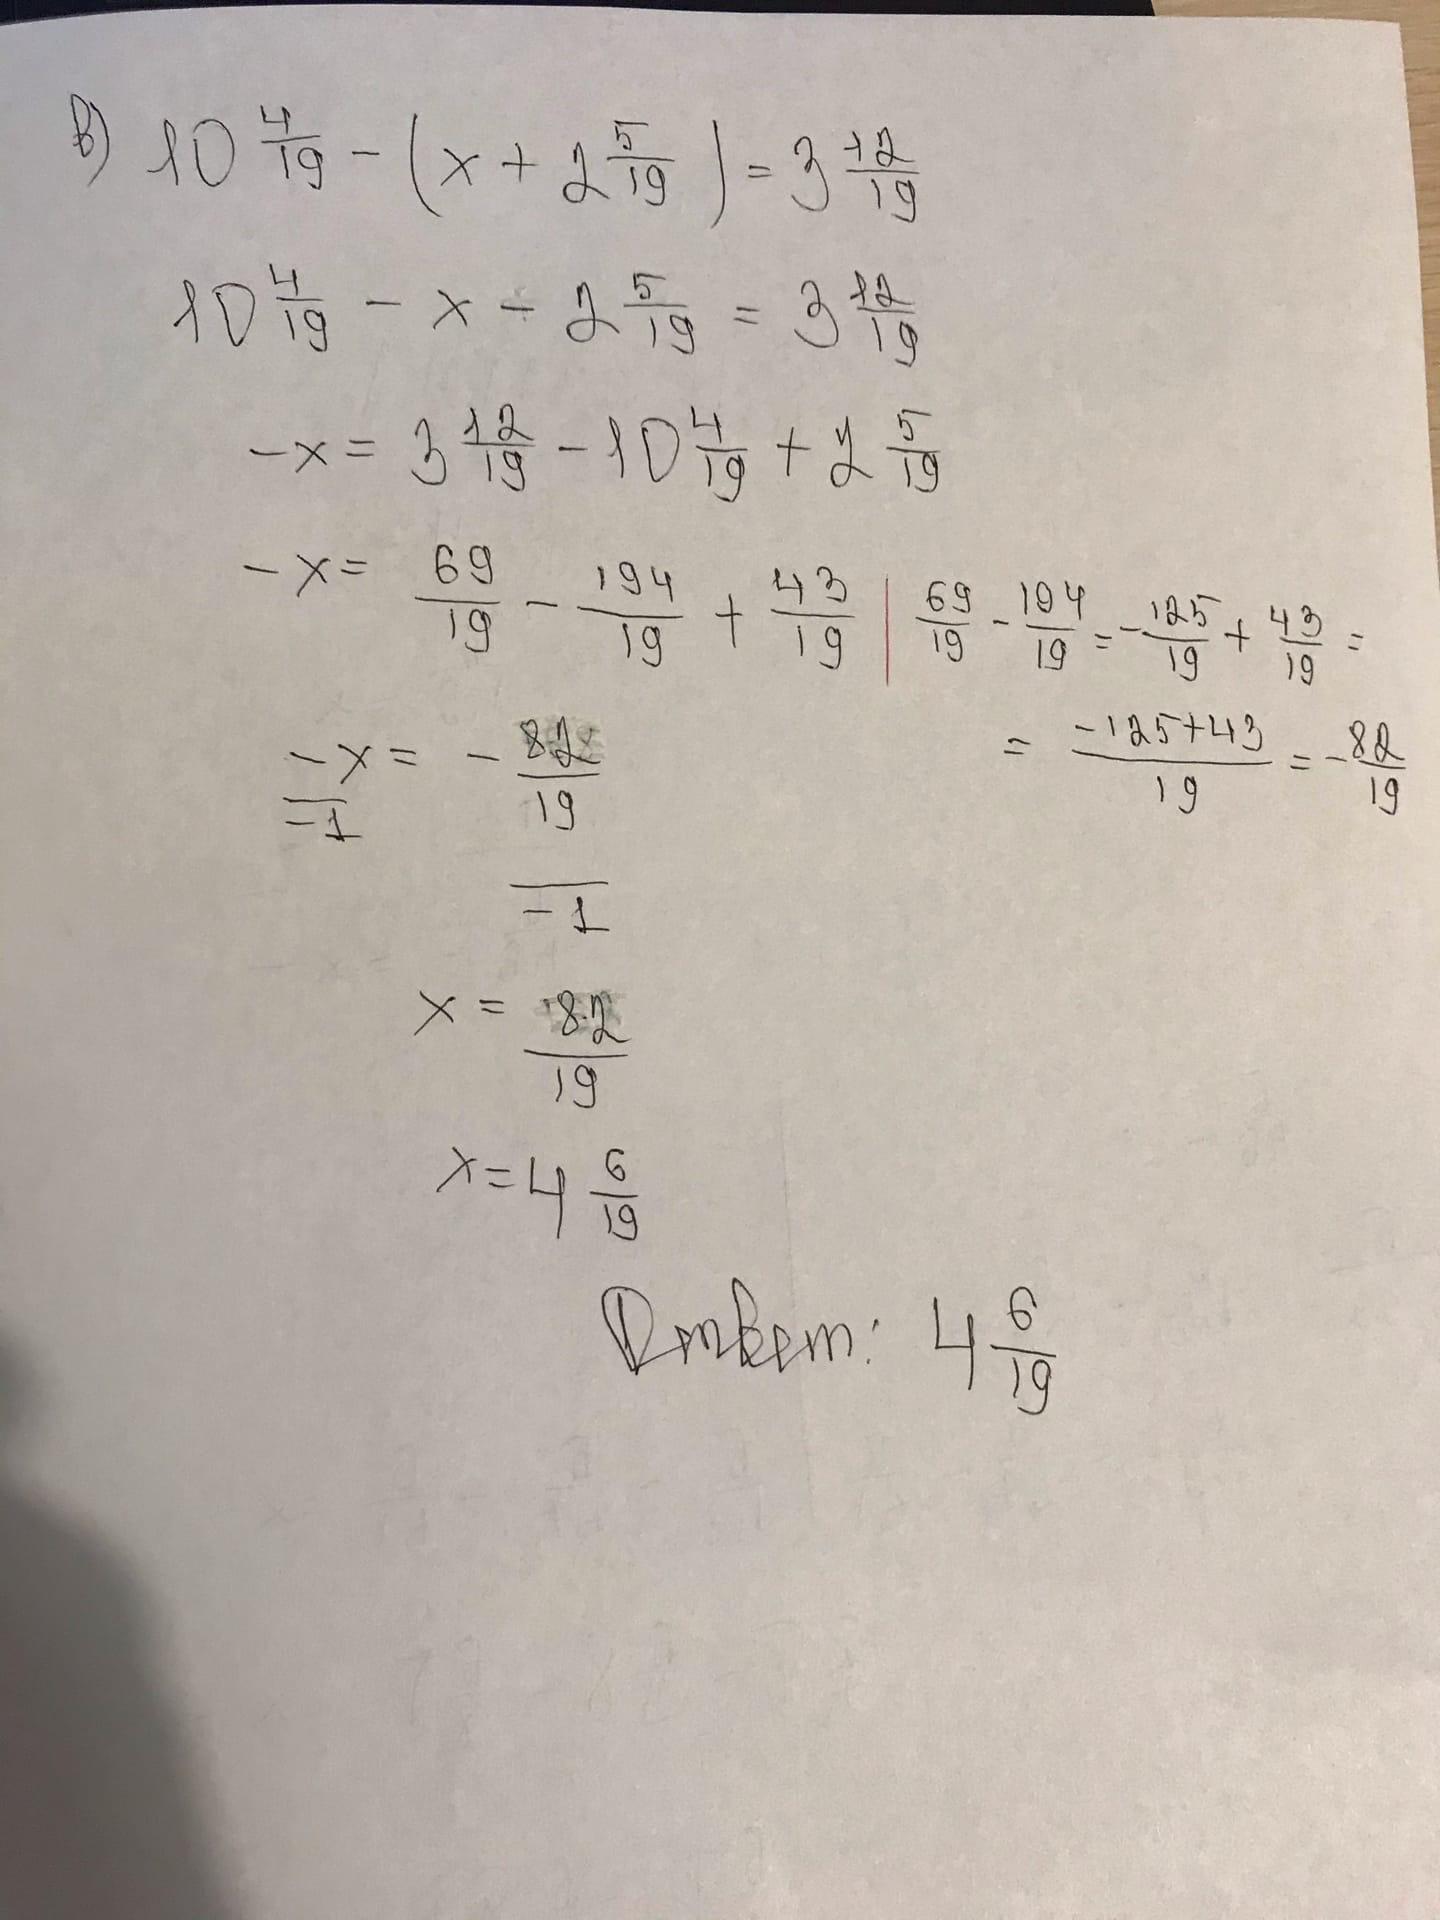 в) 10 4/19 - (x + 2 5/19) = 3 12/19
10 4/19 - x - 2 5/19 = 3 12/19
-x = 3 12/19 - 10 4/19 + 2 5/19
-x = 69/19 - 194/19 + 43/19 | 69/19 - 194/19 = -125/19 + 43/19 =
= (-125+43)/19 = -82/19
-x/-1 = -82/19 / -1
x = 82/19
x = 4 6/19
Ответ: 4 6/19